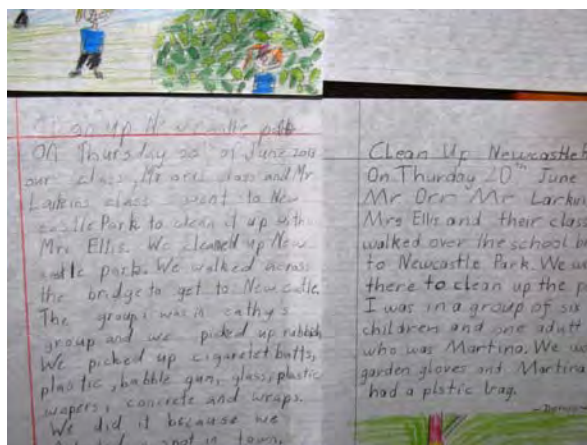 up Newcastle
ON Thursday 20th of June 2013
our class, Mr orrs class and Mr
Larkins class went to New
castle Park to clean it up with
Mrs. Ellis. We cleaned up New
castle park. We walked across
the bridge to get to Newcatle.
The group i was in cathys
group and we picked up rubbish
We picked up cigaretet butts,
plastic, babble gum, glass, plastic
wapers, concrete and wraps.
We did it because we
spot in town,
Clean Up Newcastle
On Thurday 20th June
Mr Orr Mr Larkin
Mrs Ellis and their class
walked over the school
to Newcastle Park. We
there to clean up the
I was in a group of six
children and one adult
who was Martina. We
garden gloves and Martina
had a plstic bag.